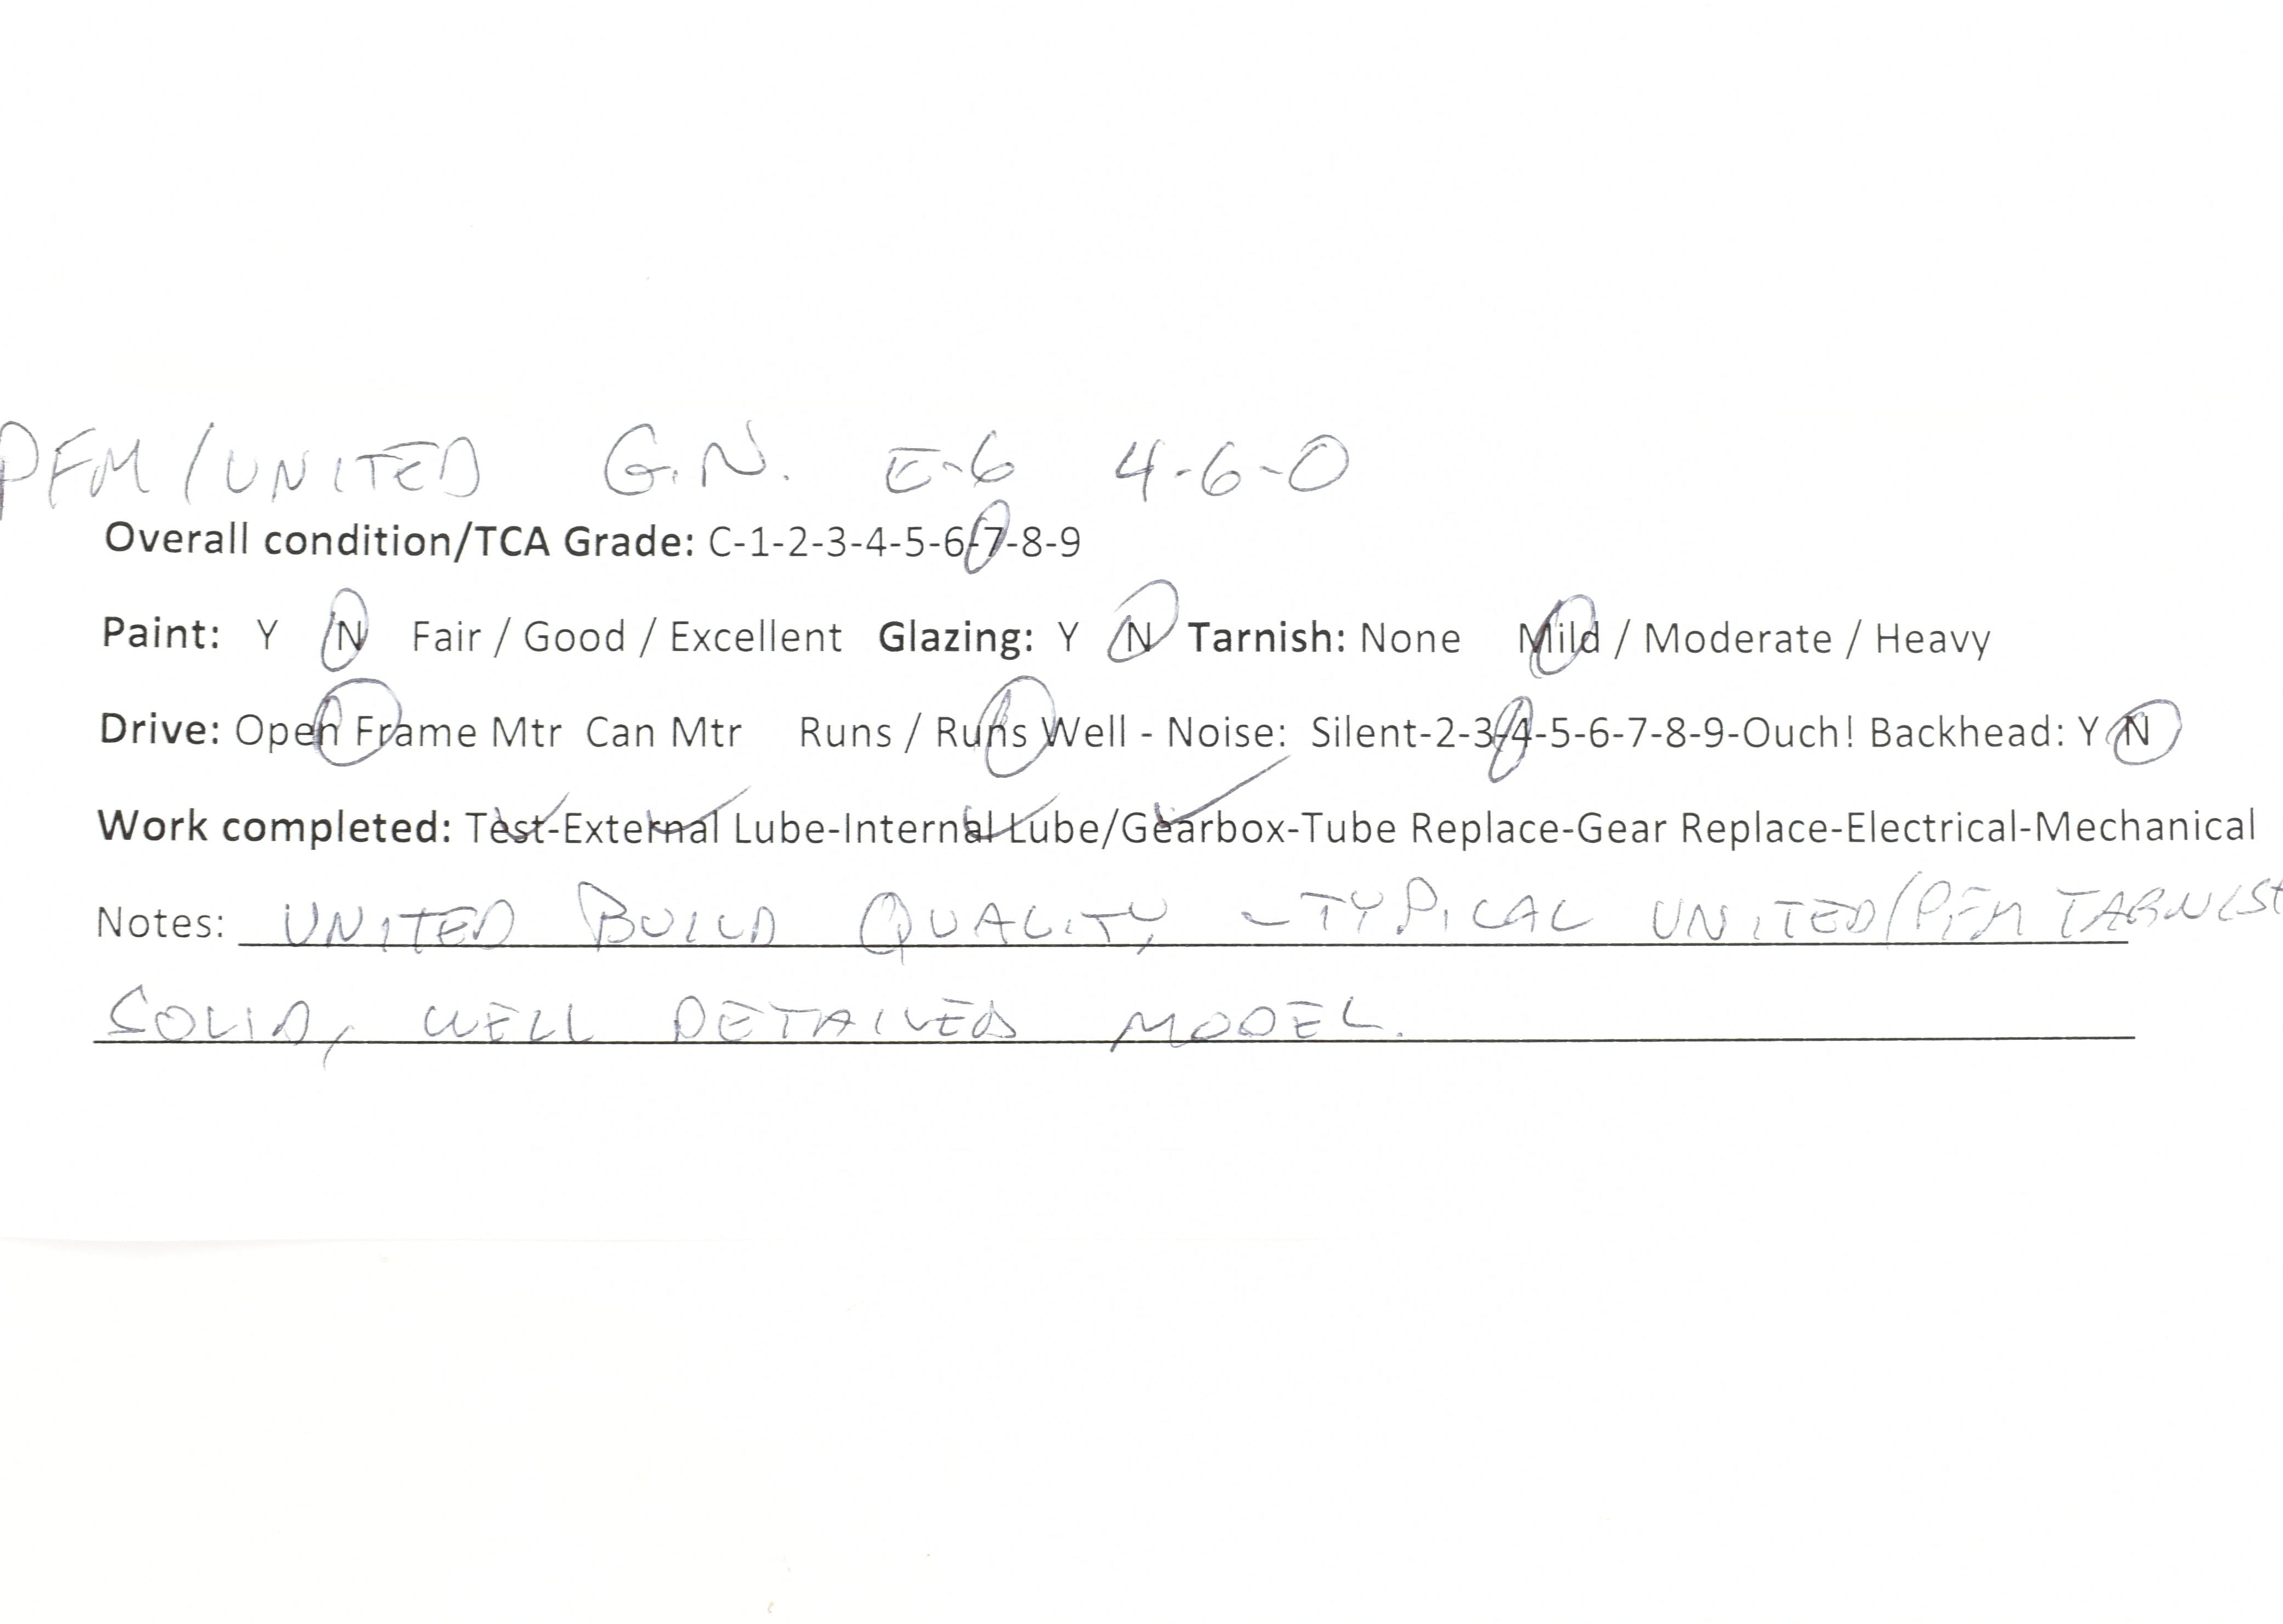 PFM/UNITED G.N. E-6 4-6-0
Overall condition/TCA Grade: C-1-2-3-4-5-6-7-8-9
Paint: Y N Fair / Good / Excellent Glazing: Y N Tarnish: None Mild / Moderate / Heavy
Drive: Open Frame Mtr Can Mtr Runs / Runs Well - Noise: Silent-2-3-4-5-6-7-8-9-Ouch! Backhead: Y N
Work completed: Test-External Lube-Internal Lube/Gearbox-Tube Replace-Gear Replace-Electrical-Mechanical
Notes: UNITED BUILD QUALITY - TYPICAL UNITED/PFM TARNISH
SOLID, WELL DETAILED MODEL.